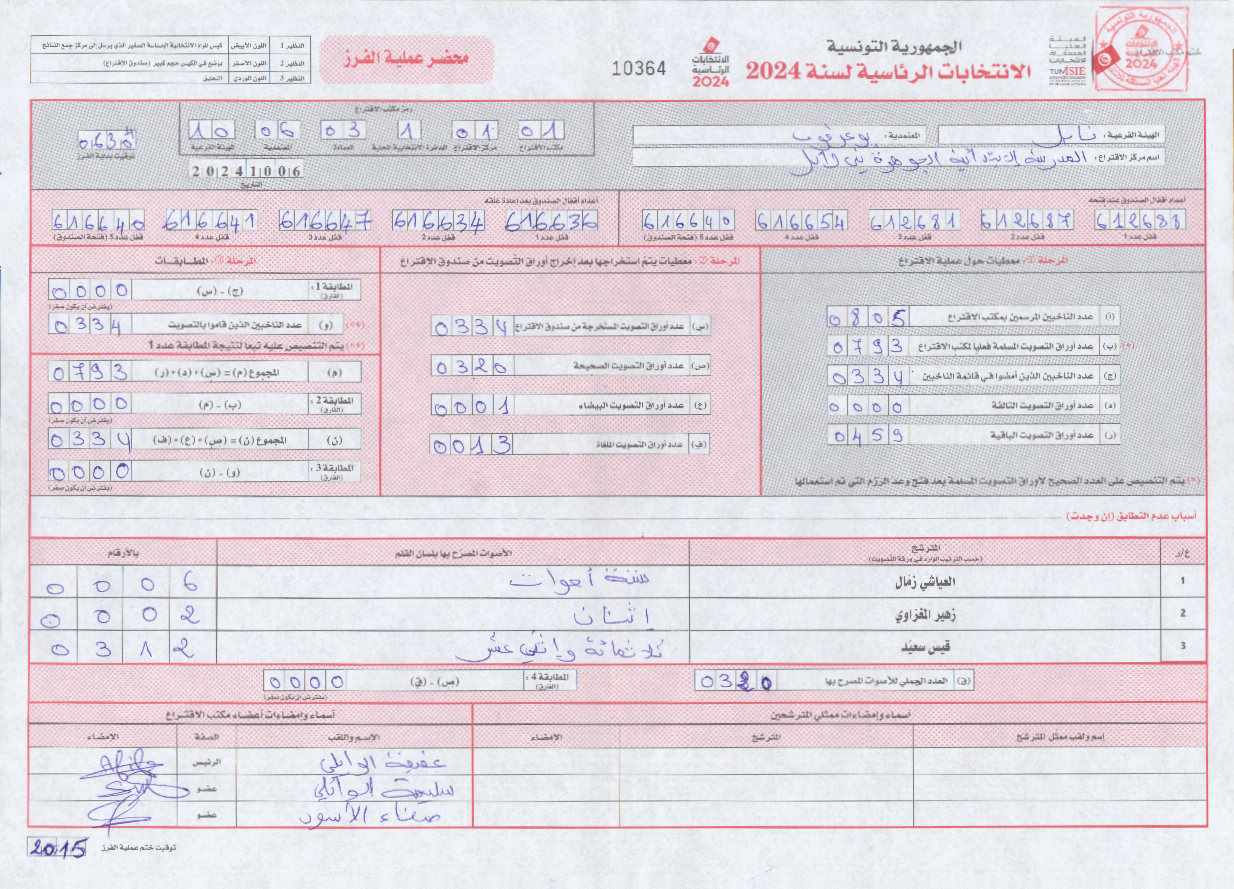 الجمهورية التونسية
الانتخابات الرئاسية لسنة 2024
الهيئة
العليا
المستقلة
للانتخابات
TUNISIE
الانتخابات
الرئاسية
2024
10364
محضر عملية الفرز
النظير 1 اللون الأبيض كيس المواد الانتخابية الحساسة الصغير الذي يرسل إلى مركز جمع النتائج
النظير 2 اللون الأصفر يوضع في الكيس حجم كبير (صندوق الاقتراع)
النظير 3 اللون الوردي التعليق
الهيئة الفرعية : نابل المعتمدية : بوعرقوب
اسم مركز الاقتراع : المدرسة الابتدائية الجوهرة بني وائل
رمز مكتب الاقتراع
01 01 1 03 06 10
مكتب الاقتراع مركز الاقتراع الدائرة الانتخابية المحلية العمادة المعتمدية الهيئة الفرعية
20241006
التاريخ
توقيت بداية الفرز
أعداد أقفال الصندوق عند فتحه
612688 612687 612681 616654 616640
قفل عدد 1 قفل عدد 2 قفل عدد 3 قفل عدد 4 قفل عدد 5 (فتحة الصندوق)
أعداد أقفال الصندوق بعد إعادة غلقه
616636 616634 616647 616641 616640
قفل عدد 1 قفل عدد 2 قفل عدد 3 قفل عدد 4 قفل عدد 5 (فتحة الصندوق)
المرحلة ①: معطيات حول عملية الاقتراع
(أ) عدد الناخبين المرسمين بمكتب الاقتراع 0805
(*) (ب) عدد أوراق التصويت المسلمة فعليا لمكتب الاقتراع 0793
(ج) عدد الناخبين الذين أمضوا في قائمة الناخبين 0334
(د) عدد أوراق التصويت التالفة 0000
(ر) عدد أوراق التصويت الباقية 0459
(*) يتم التنصيص على العدد الصحيح لأوراق التصويت المسلمة بعد فتح وعد الرزم التي تم استعمالها
المرحلة ②: معطيات يتم استخراجها بعد إخراج أوراق التصويت من صندوق الاقتراع
(س) عدد أوراق التصويت المستخرجة من صندوق الاقتراع 0334
(ص) عدد أوراق التصويت الصحيحة 0320
(ع) عدد أوراق التصويت البيضاء 0001
(ف) عدد أوراق التصويت الملغاة 0013
المرحلة ③: المطابقات
المطابقة 1: (الفارق) (ج) - (س) 0000
(يفترض أن يكون صفر)
(**) (و) عدد الناخبين الذين قاموا بالتصويت 0334
(**) يتم التنصيص عليه تبعا لنتيجة المطابقة عدد 1
(م) المجموع (م) = (س) + (د) + (ر) 0793
المطابقة 2: (الفارق) (ب) - (م) 0000
(يفترض أن يكون صفر)
(ن) المجموع (ن) = (ص) + (ع) + (ف) 0334
المطابقة 3: (الفارق) (و) - (ن) 0000
(يفترض أن يكون صفر)
أسباب عدم التطابق (إن وجدت)
ع/د المترشح الأصوات المصرح بها بلسان القلم بالأرقام
(حسب الترتيب الوارد في ورقة التصويت)
1 العياشي زمال ستة أصوات 0006
2 زهير المغزاوي اثنان 0002
3 قيس سعيّد ثلاثمائة وإثني عشر 0312
(ق) العدد الجملي للأصوات المصرح بها 0320
المطابقة 4: (الفارق) (ص) - (ق) 0000
(يفترض أن يكون صفر)
أسماء وإمضاءات ممثلي المترشحين
إسم ولقب ممثل المترشح المترشح الامضاء
أسماء وإمضاءات أعضاء مكتب الاقتراع
الاسم واللقب الصفة الامضاء
عفيفة الوائلي الرئيس
سليمة الوائلي عضو
صفاء الأسود عضو
توقيت ختم عملية الفرز 2015